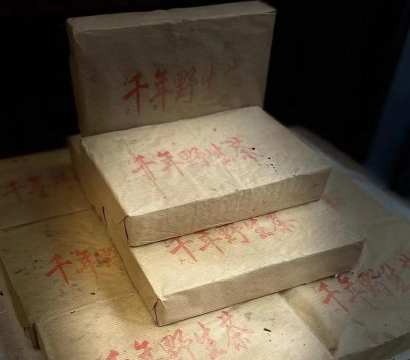 千年野生茶
千年野生茶
千年野生茶
千年野
千年野生茶
千年野生茶